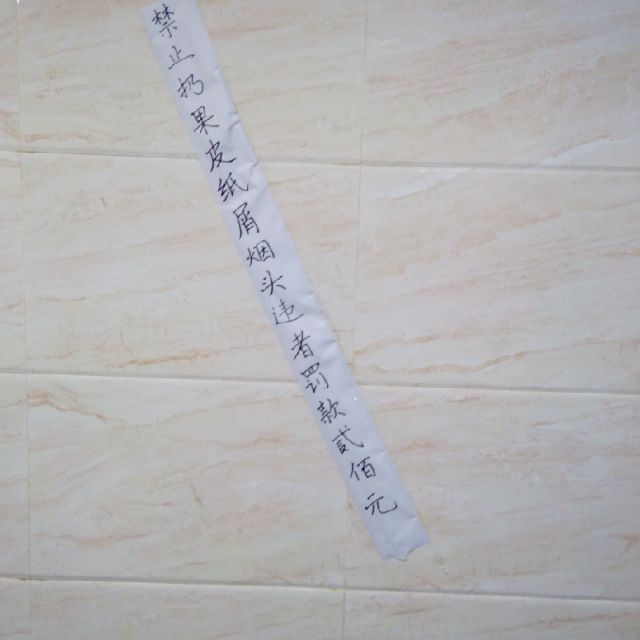 禁止扔果皮纸屑烟头违者罚款贰佰元